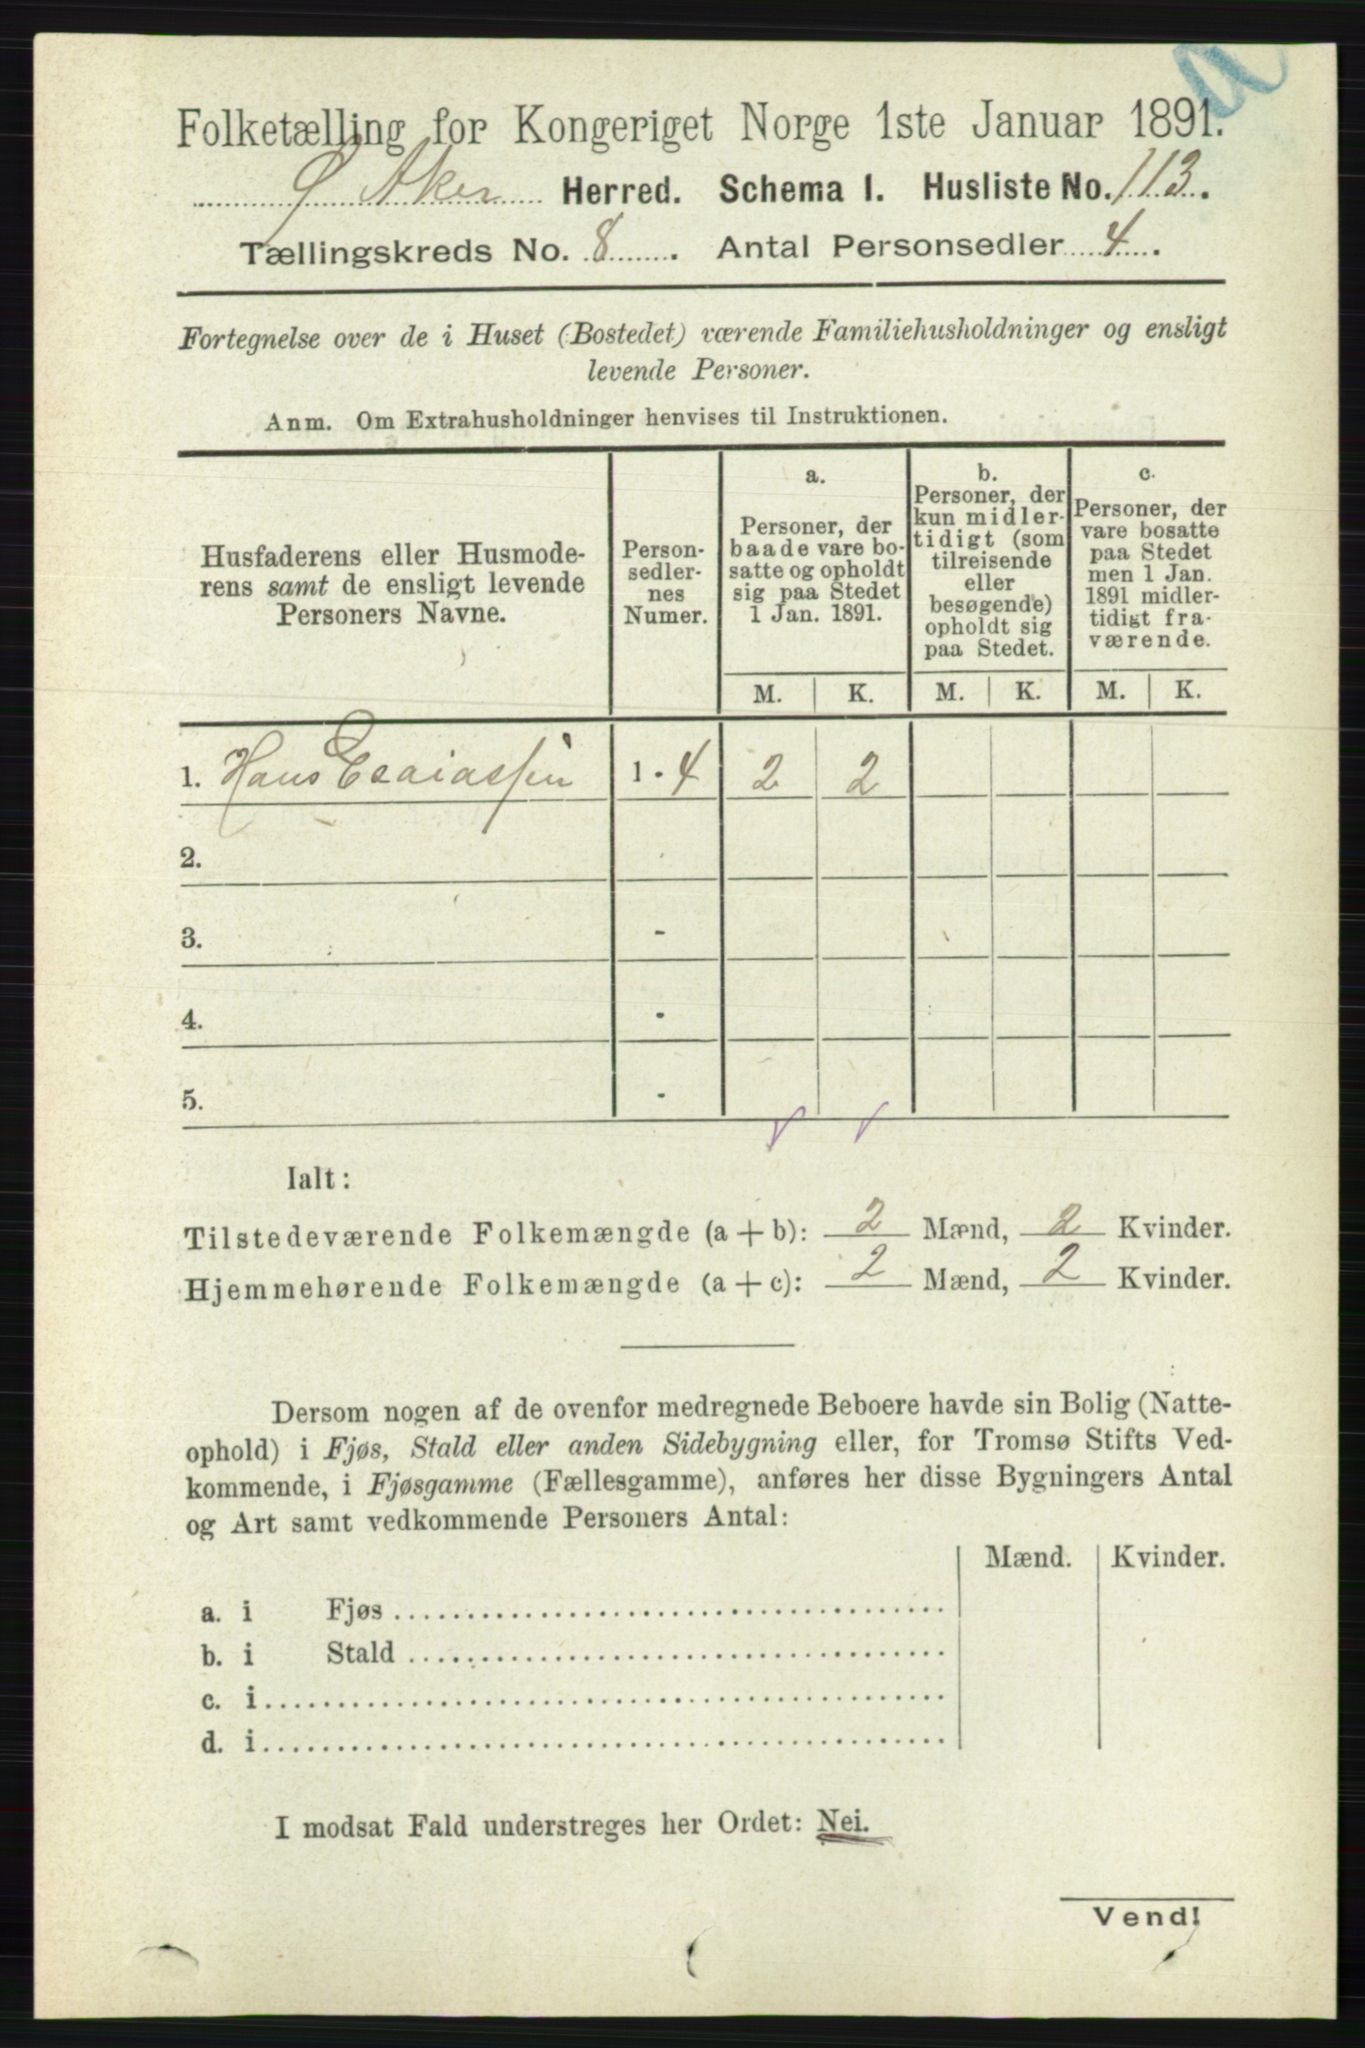 Folketælling for Kongeriget Norge 1ste Januar 1891.
Aker Herred. Schema 1. Husliste No. 113.
Tællingskreds No. 8. Antal Personsedler 4.
Fortegnelse over de i Huset (Bostedet) værende Familiehusholdninger og ensligt
levende Personer.
Anm. Om Extrahusholdninger henvises til Instruktionen.
Husfaderens eller Husmode-
rens samt de ensligt levende
Personers Navne.
Person-
sedler-
nes
Numer.
a.
Personer, der
baade vare bo-
satte og opholdt
sig paa Stedet
1 Jan. 1891.
b.
Personer, der
kun midler-
tidigt (som
tilreisende
eller
besøgende)
opholdt sig
paa Stedet.
c.
Personer, der
vare bosatte
paa Stedet
men 1 Jan.
1891 midler-
tidigt fra-
værende.
M. K. M. K. M. K.
1. Hans Esaiassen 1 - 4 2 2
2.
3. -
4. -
5. -
Ialt:
Tilstedeværende Folkemængde (a + b): 2 Mænd, 2 Kvinder.
Hjemmehørende Folkemængde (a + c): 2 Mænd, 2 Kvinder.
Dersom nogen af de ovenfor medregnede Beboere havde sin Bolig (Natte-
ophold) i Fjøs, Stald eller anden Sidebygning eller, for Tromsø Stifts Ved-
kommende, i Fjøsgamme (Fællesgamme), anføres her disse Bygningers Antal
og Art samt vedkommende Personers Antal:
Mænd. Kvinder.
a. i Fjøs
b. i Stald
c. i
d. i
I modsat Fald understreges her Ordet: Nei.
Vend!